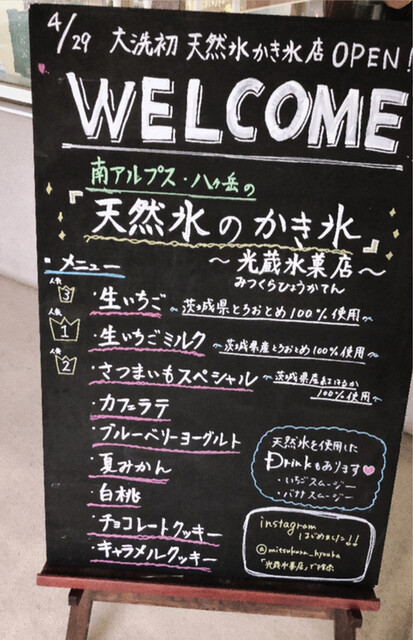 4/29 大洗初 天然氷かき氷店 OPEN!
WELCOME
南アルプス・八ヶ岳の
『天然氷のかき氷』
～光蔵氷菓店～
みつくらひょうかてん
・メニュー
人気 3 ・生いちご ～茨城県とちおとめ100%使用～
人気 1 ・生いちごミルク ～茨城県産とちおとめ100%使用～
人気 2 ・さつまいもスペシャル ～茨城県産紅はるか
100%使用～
・カフェラテ
・ブルーベリーヨーグルト
・夏みかん
・白桃
・チョコレートクッキー
・キャラメルクッキー
天然氷を使用した
Drinkもあります
・いちごスムージー
・バナナスムージー
instagram
はじめました!!
@mitsukura_hyouka
「光蔵氷菓店」で検索